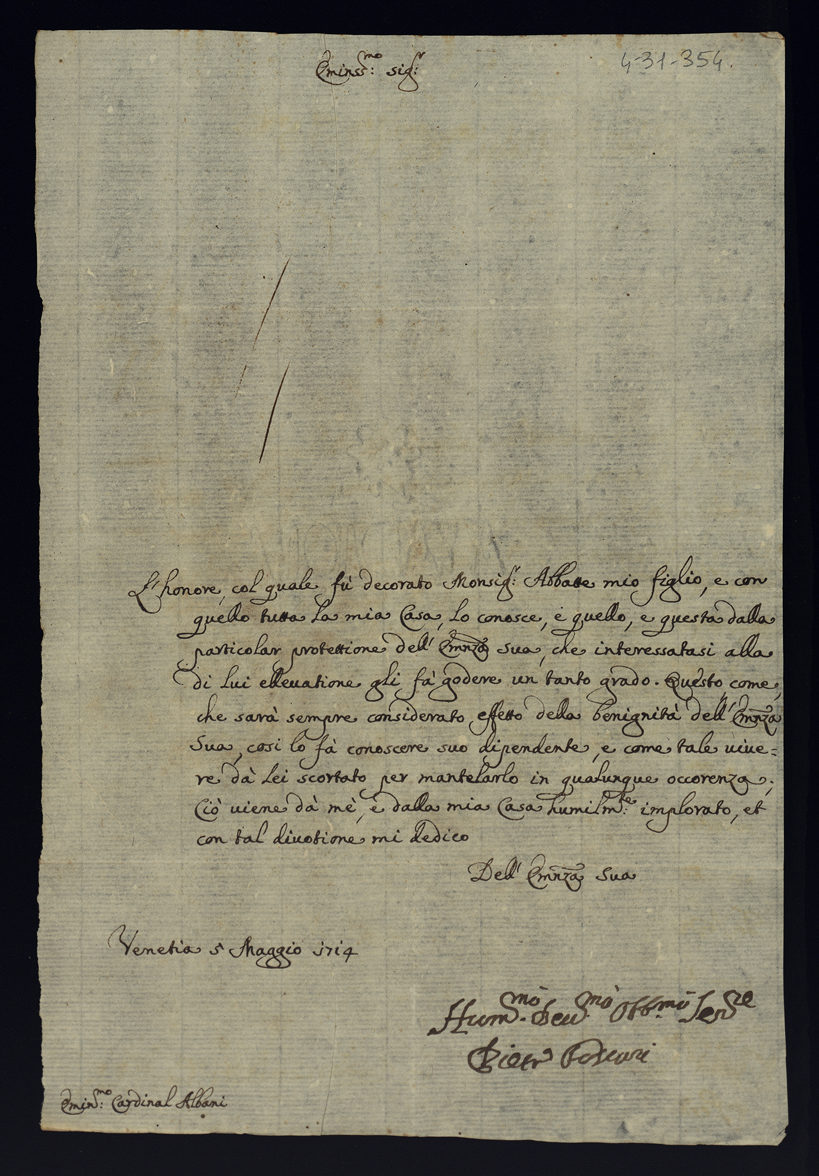 Eminss:mo sig:r
4-31-354.
L'honore, col quale fù decorato Monsig:r Abbate mio figlio, e con
quello tutta la mia Casa, lo conosce, e quello, e questa dalla
particolar protettione dell' Emnza sua, che interessatasi alla
di lui elleuatione gli fà godere un tanto grado. Questo come,
che sarà sempre considerato effetto della benignità dell' Emnza
Sua, così lo fà conoscere suo dipendente, e come tale uiue=
re dà lei scortato per mantelarlo in qualunque occorenza;
Ciò uiene dà mè, e dalla mia Casa humilm:te implorato, et
con tal diuotione mi dedico
Dell' Emnza Sua
Venetia 5 Maggio 1714
Hum.mo Deu.mo Obb.mo Ser.re
Pietro Foscari
Emin:mo Cardinal Albani